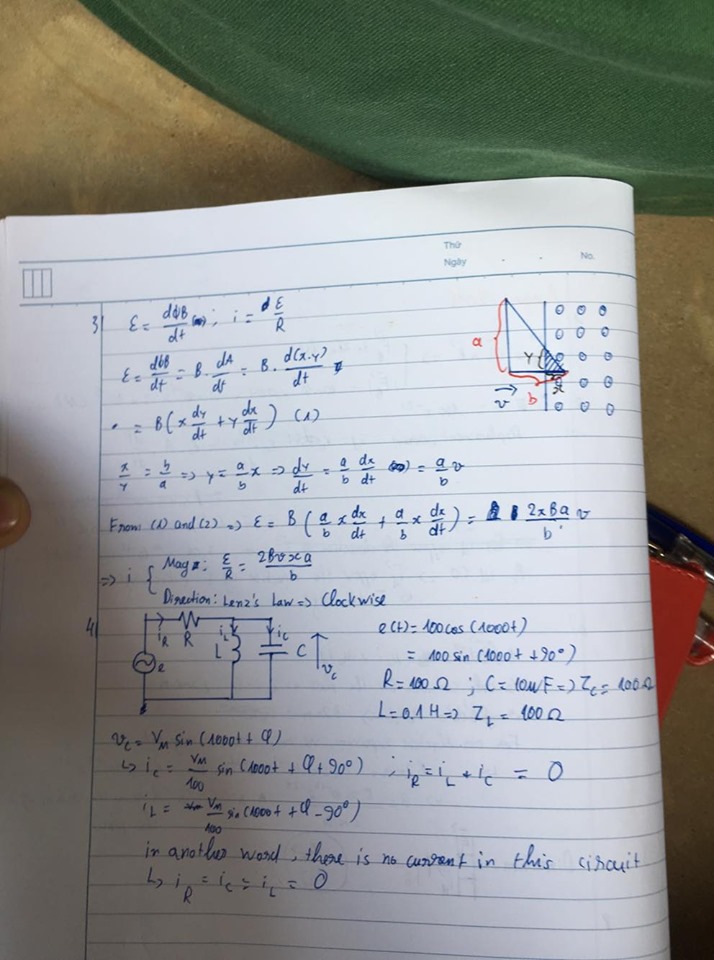 Thứ
Ngày - - No.
3) ε = dϕB/dt ; i = ε/R
ε = dϕB/dt = B · dA/dt = B · d(x·y)/dt
= B(x dy/dt + y dx/dt) (1)
x/y = b/a => y = a/b x => dy/dt = a/b dx/dt = a/b v
From (1) and (2) => ε = B (a/b x dx/dt + a/b x dx/dt) = 2xBa/b v
=> i { Mag: ε/R = 2Bvxa/b
Direction: Lenz's Law => Clockwise
a
Y
x
b
v
4)
iR R iL L iC C vc e
e(t) = 100cos(1000t)
= 100 sin(1000t + 90°)
R = 100Ω ; C = 10uF => Zc = 100Ω
L = 0.1H => ZL = 100Ω
vc = VM sin(1000t + φ)
↳ ic = VM/100 sin(1000t + φ + 90°) ; iR = iL + ic = 0
iL = VM/100 sin(1000t + φ - 90°)
in another word, there is no current in this circuit
↳ iR = ic = iL = 0